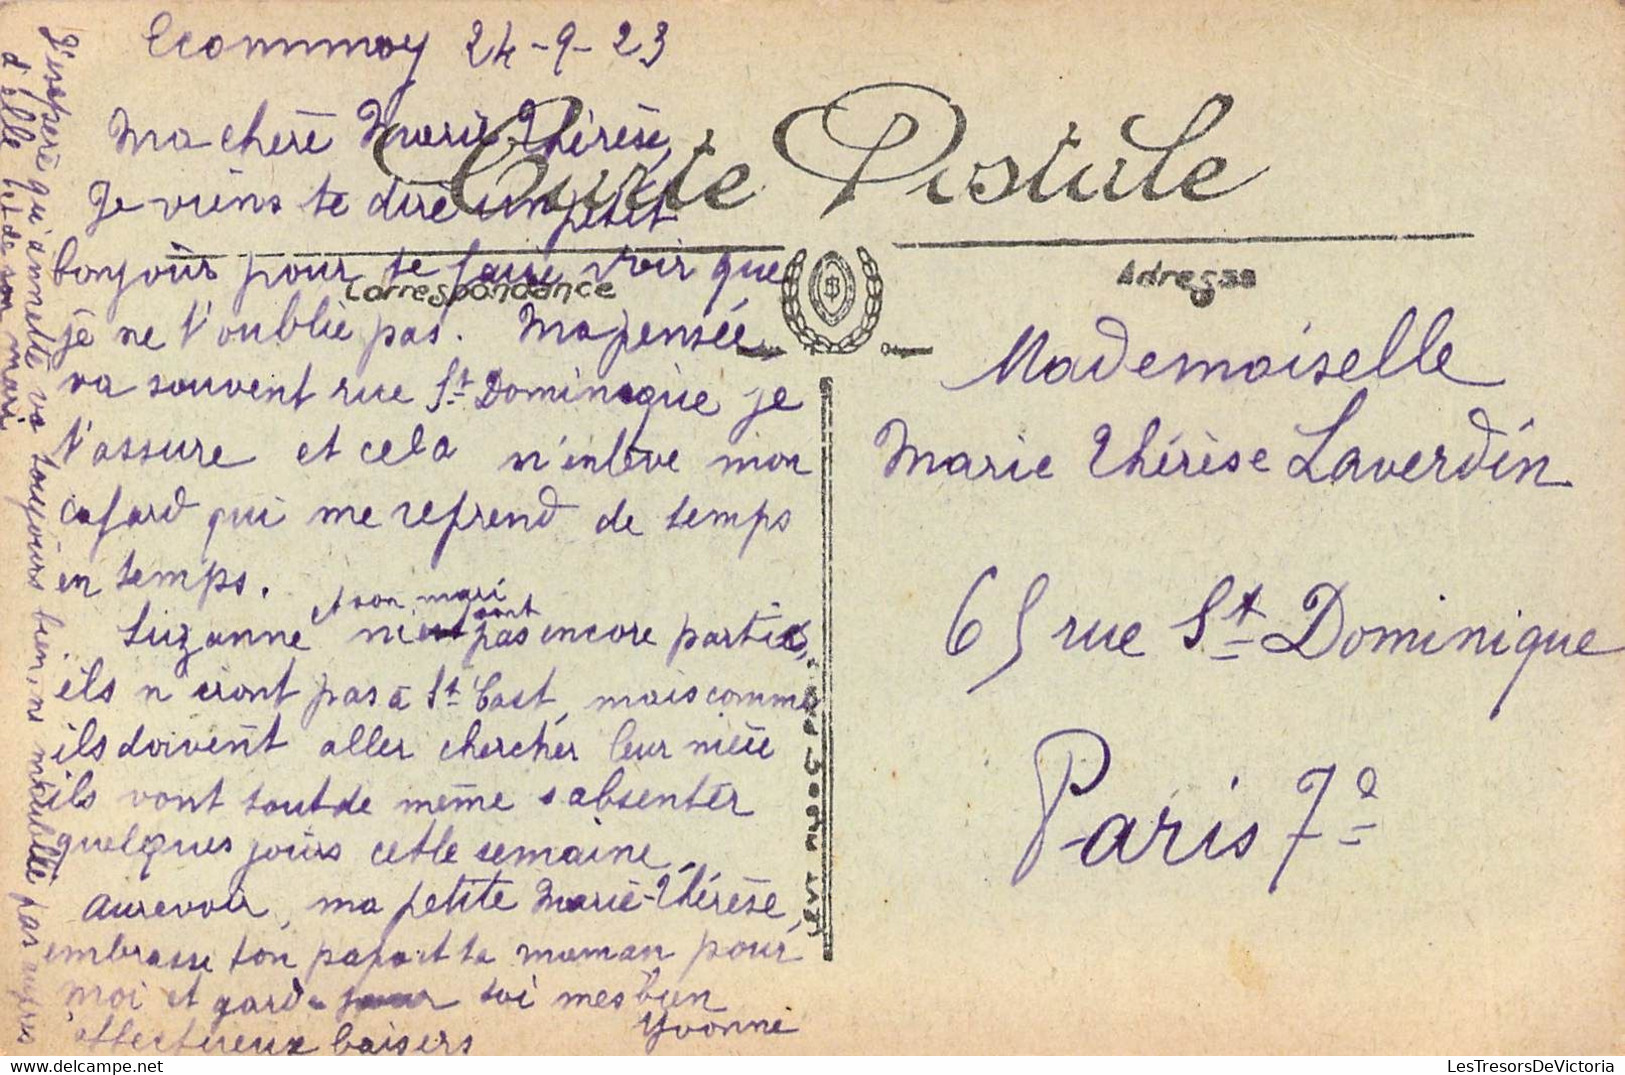 Ecommoy 24-9-23
Ma chère Marie-Thérèse,
Je viens te dire un petit
bonjour pour te faire voir que
je ne t'oublie pas. Ma pensée
va souvent rue St Dominique je
t'assure et cela n'enlève mon
cafard qui me reprend de temps
en temps.
Suzanne et son mari ne sont pas encore partis,
ils n'iront pas à St Cast, mais comme
ils doivent aller chercher leur nièce
ils vont tout de même s'absenter
quelques jours cette semaine,
au revoir, ma petite Marie-Thérèse,
embrasse ton papa et ta maman pour
moi et garde pour toi mes bien
affectueux baisers
Yvonne
J'espère qu'Annette va toujours bien, ne m'oublie pas auprès
d'elle et de son mari
Carte Postale
Correspondance
Adresse
Mademoiselle
Marie Thérèse Laverdin
65 rue St Dominique
Paris 7e
LesTresorsDeVictoria